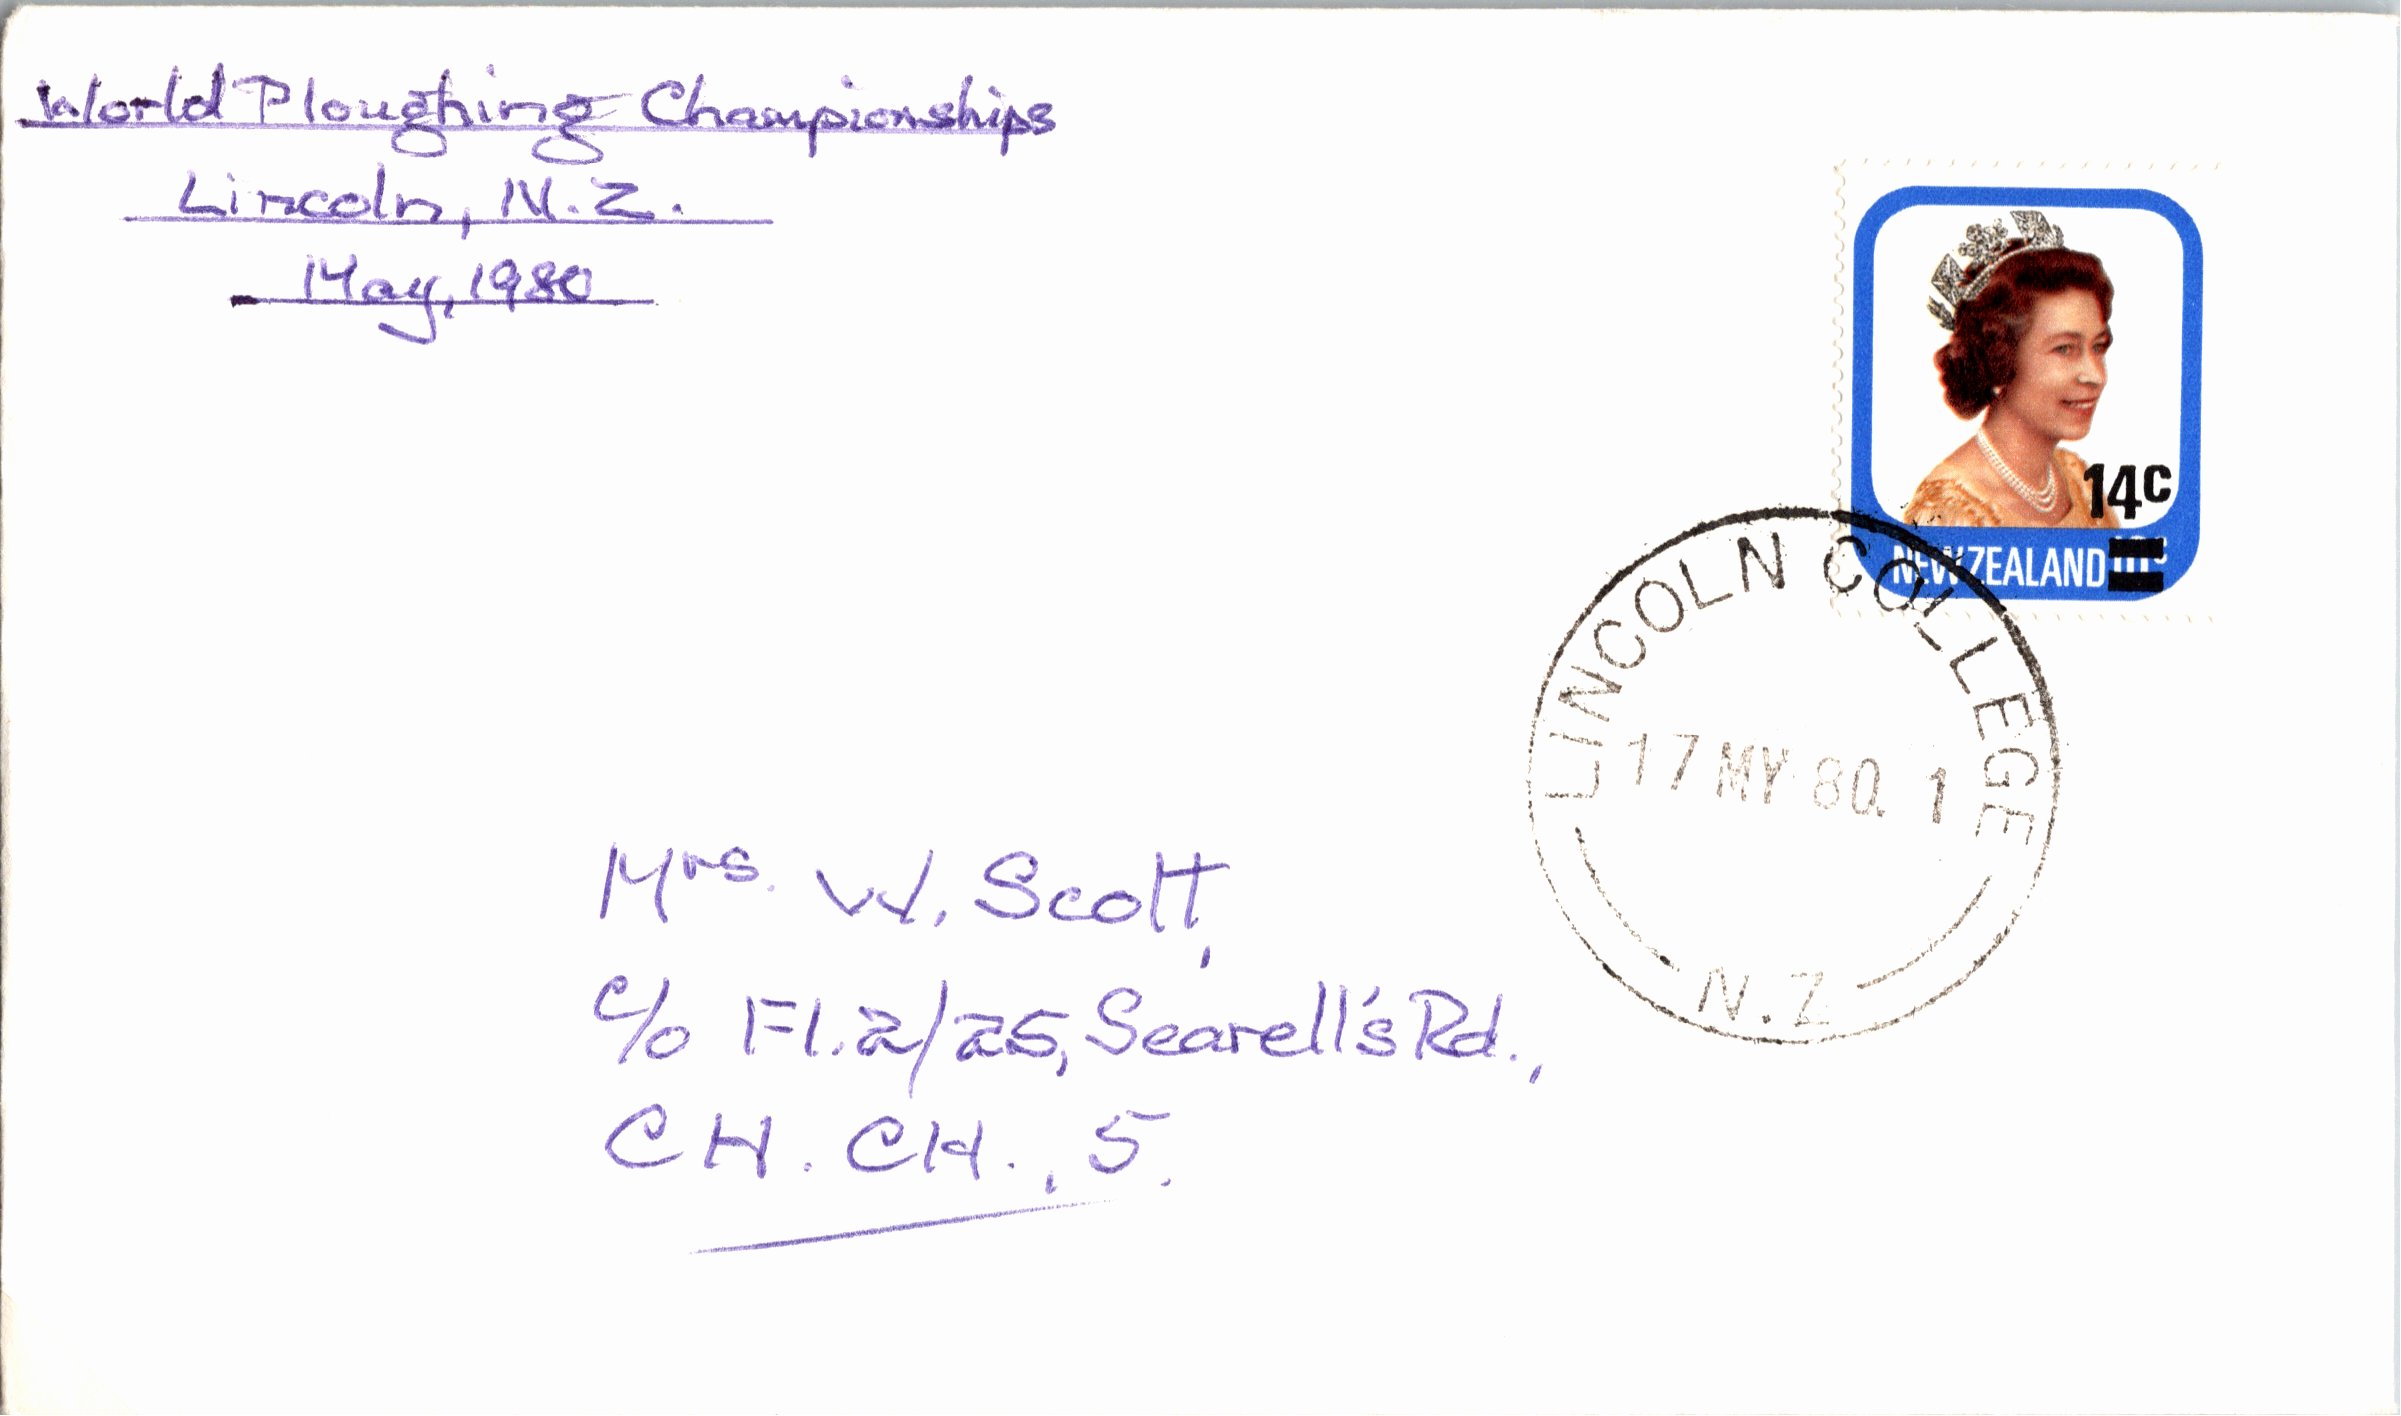 World Ploughing Championships
Lincoln, N.Z.
May, 1980
14c
NEW ZEALAND 10c
LINCOLN COLLEGE
17 MY 80. 1
N.Z
Mrs. W. Scott,
c/o Fl. 2/25, Searell's Rd.,
CH. CH., 5.